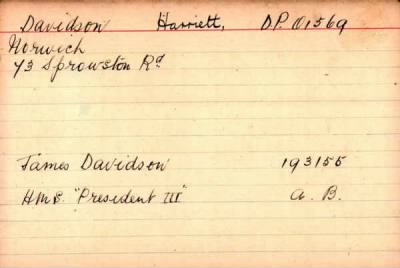 Davidson Harriett, D.P. 01569
Norwich
73 Sprowston Rd
James Davidson 193155
H.M.S. "President III" A. B.